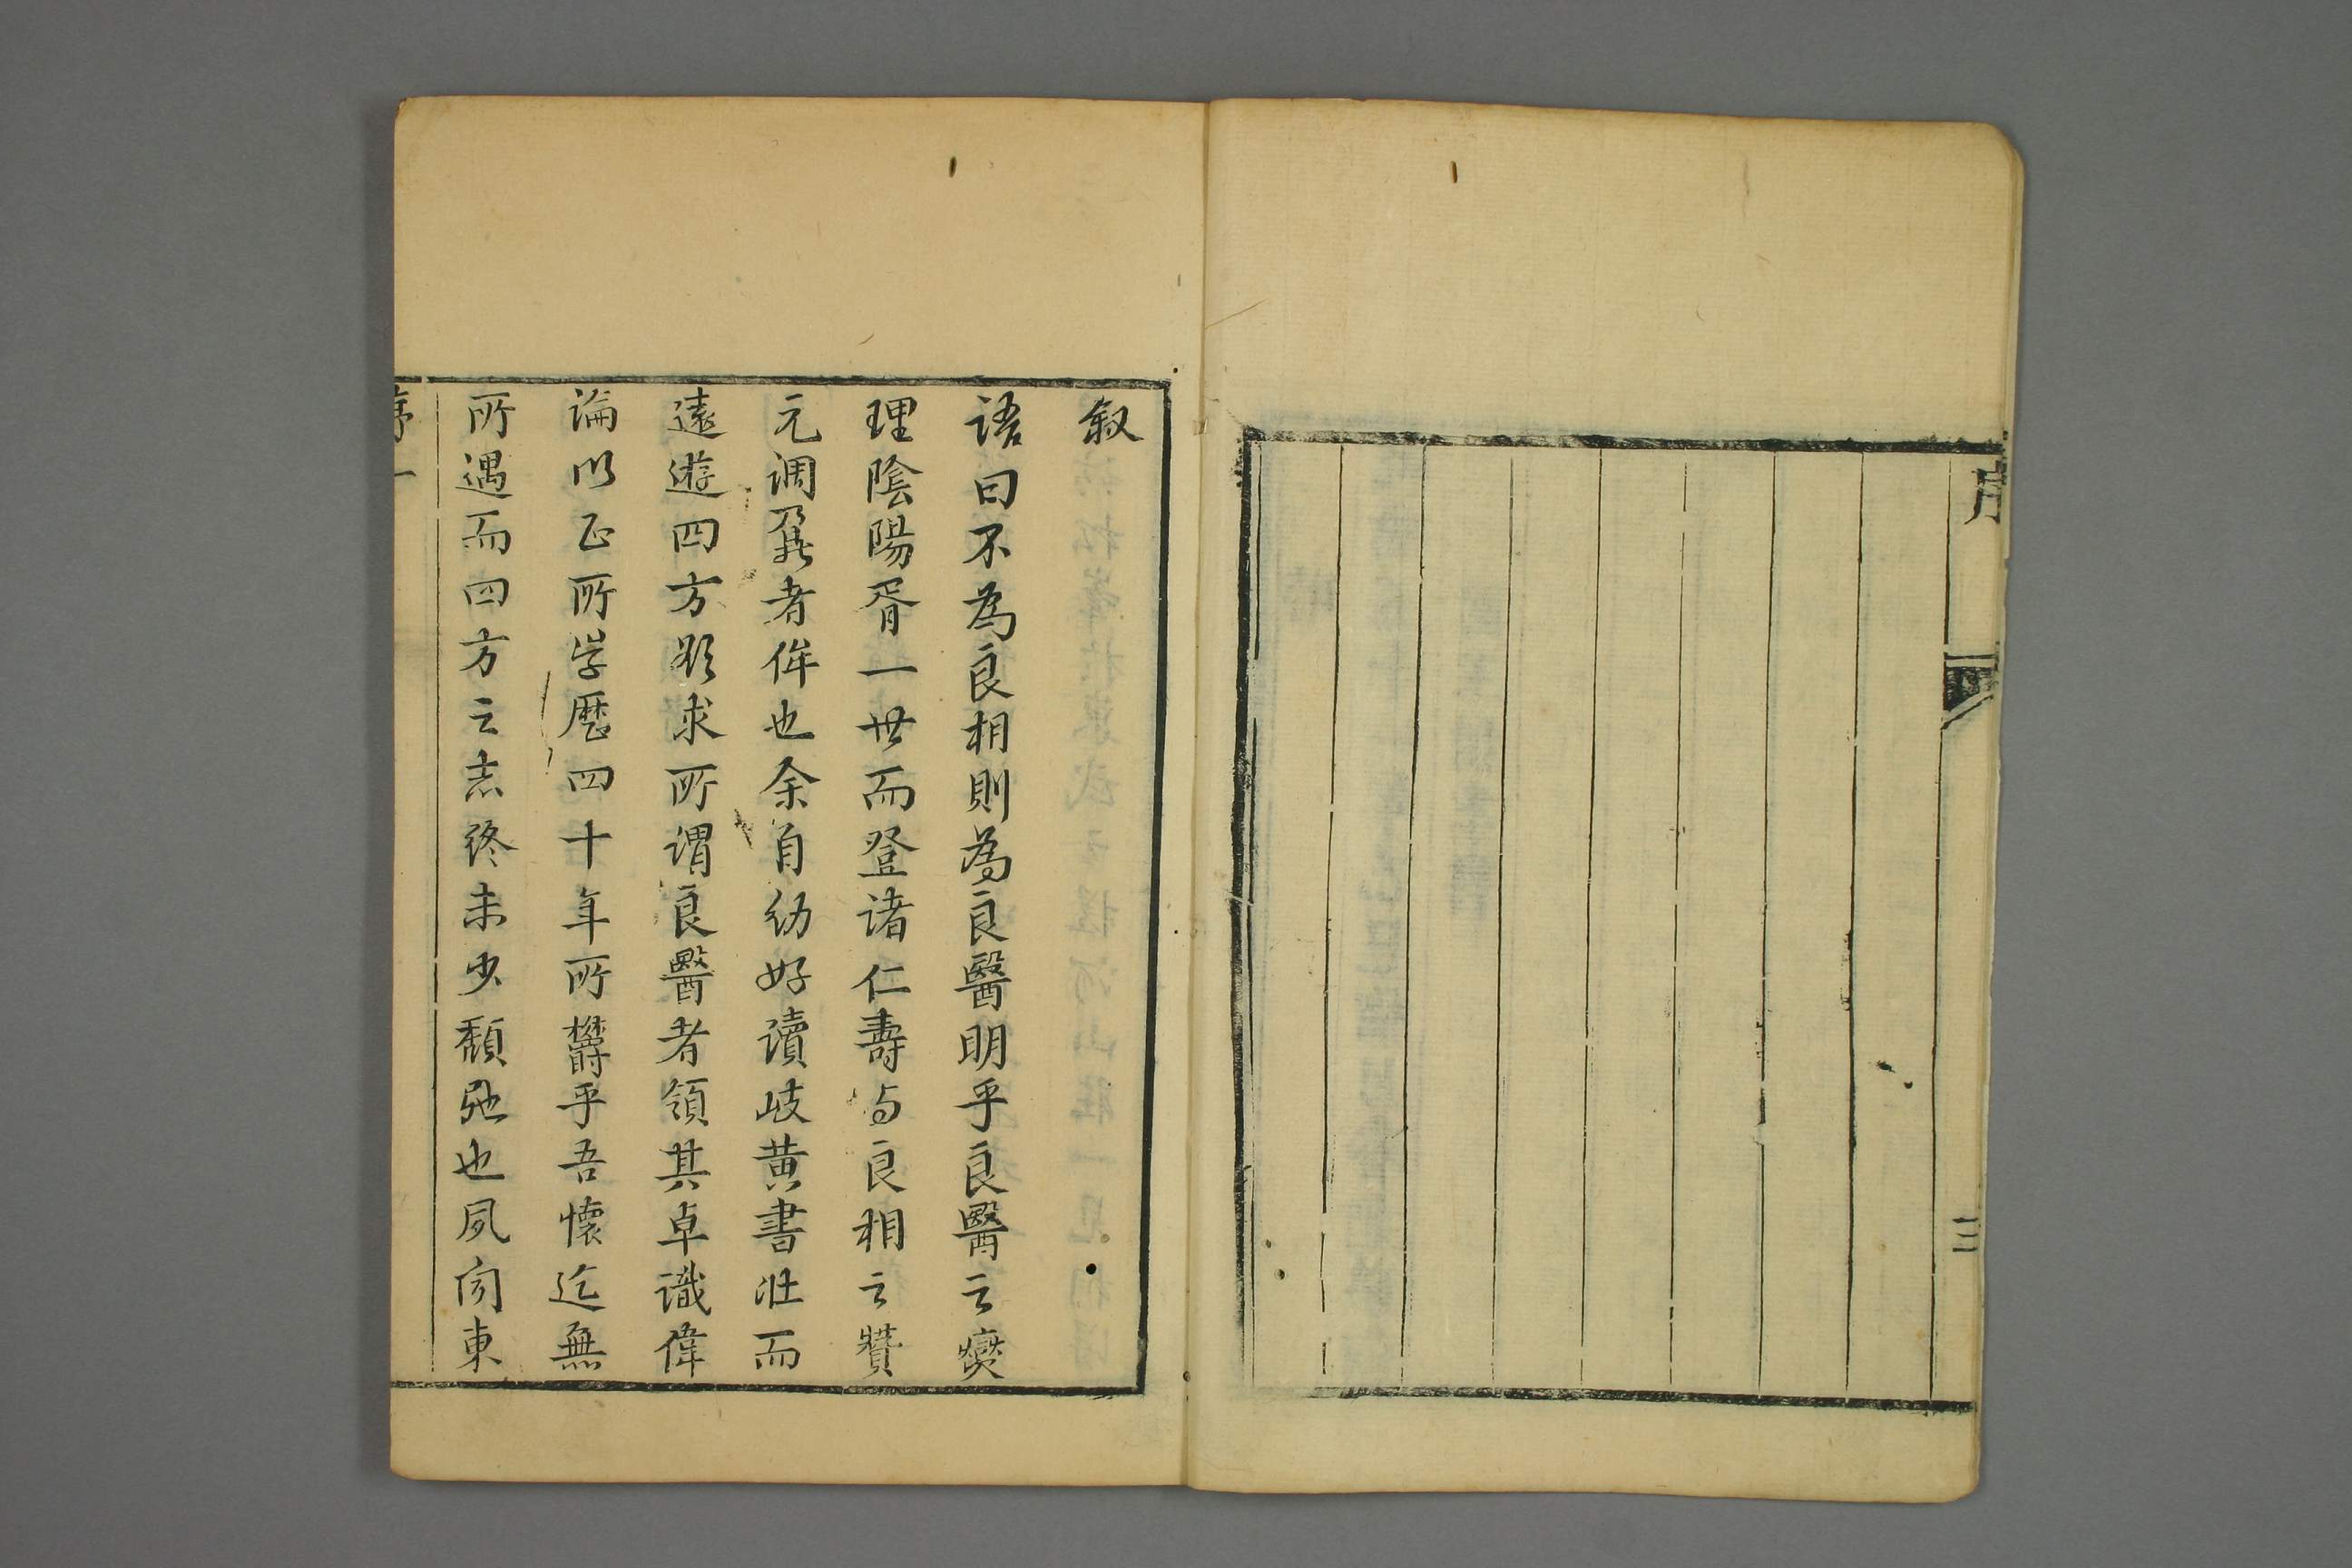 序
三
叙
語曰不為良相則為良醫明乎良醫之爕
理陰陽胥一世而登诸仁壽与良相之賛
元调鼐者侔也余自幼好讀岐黄書壯而
遠遊四方欲求所謂良醫者領其卓識偉
論以正所学歷四十年所欝乎吾懷迄無
所遇而四方之志终未少頽弛也夙闻東
序一